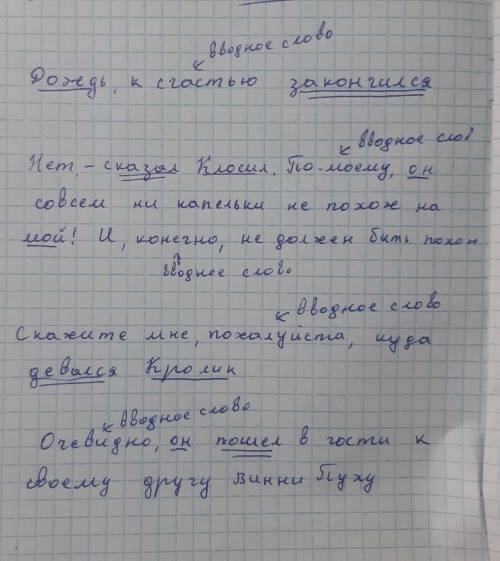 вводное слово
Дождь, к счастью закончился
вводное слов
Нет, - сказал Клосил. По-моему, он
совсем ни капельки не похож на
мой! И, конечно, не должен быть похож
вводное слово
вводное слово
Скажите мне, пожалуйста, куда
девался Кролик
вводное слово
Очевидно, он пошел в гости к
своему другу Винни Пуху